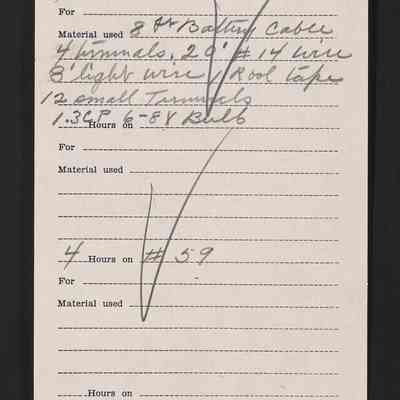 For
Material used 8 ft Battery Cable
4 terminals, 20' # 14 wire
8' light wire 1 Rool tape
12 small Terminals
1. 3CP 6-8V Bulb
Hours on
For
Material used
4 Hours on # 59
For
Material used
Hours on